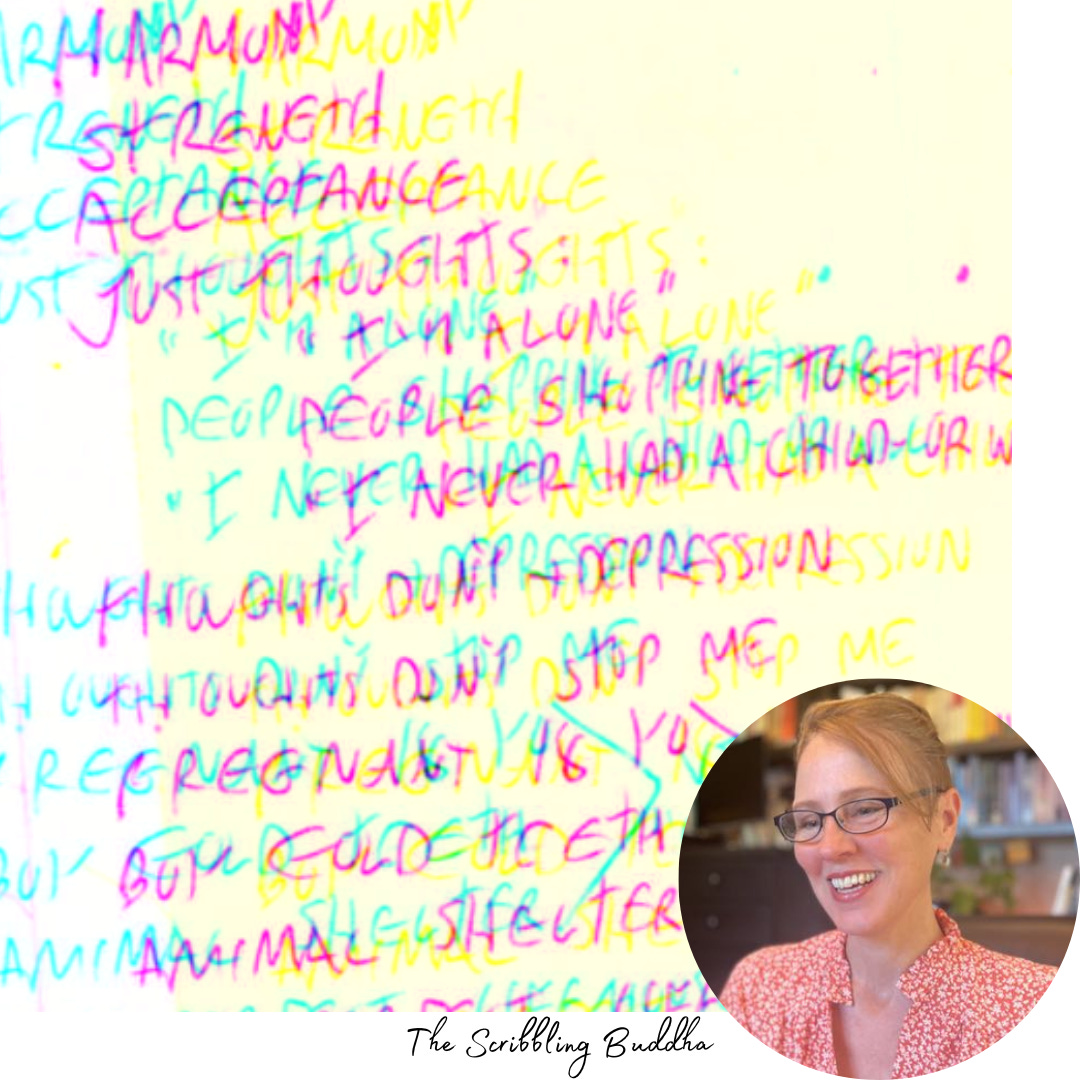 HARMONY
STRENGTH
ACCEPTANCE
JUST THOUGHTS:
"I'M ALONE"
PEOPLE SHOPPING TOGETHER
"I NEVER HAD A CHILD
THOUGHTS DON'T → DEPRESSION
THOUGHTS DON'T STOP ME
ANIMAL SHELTER
The Scribbling Buddha